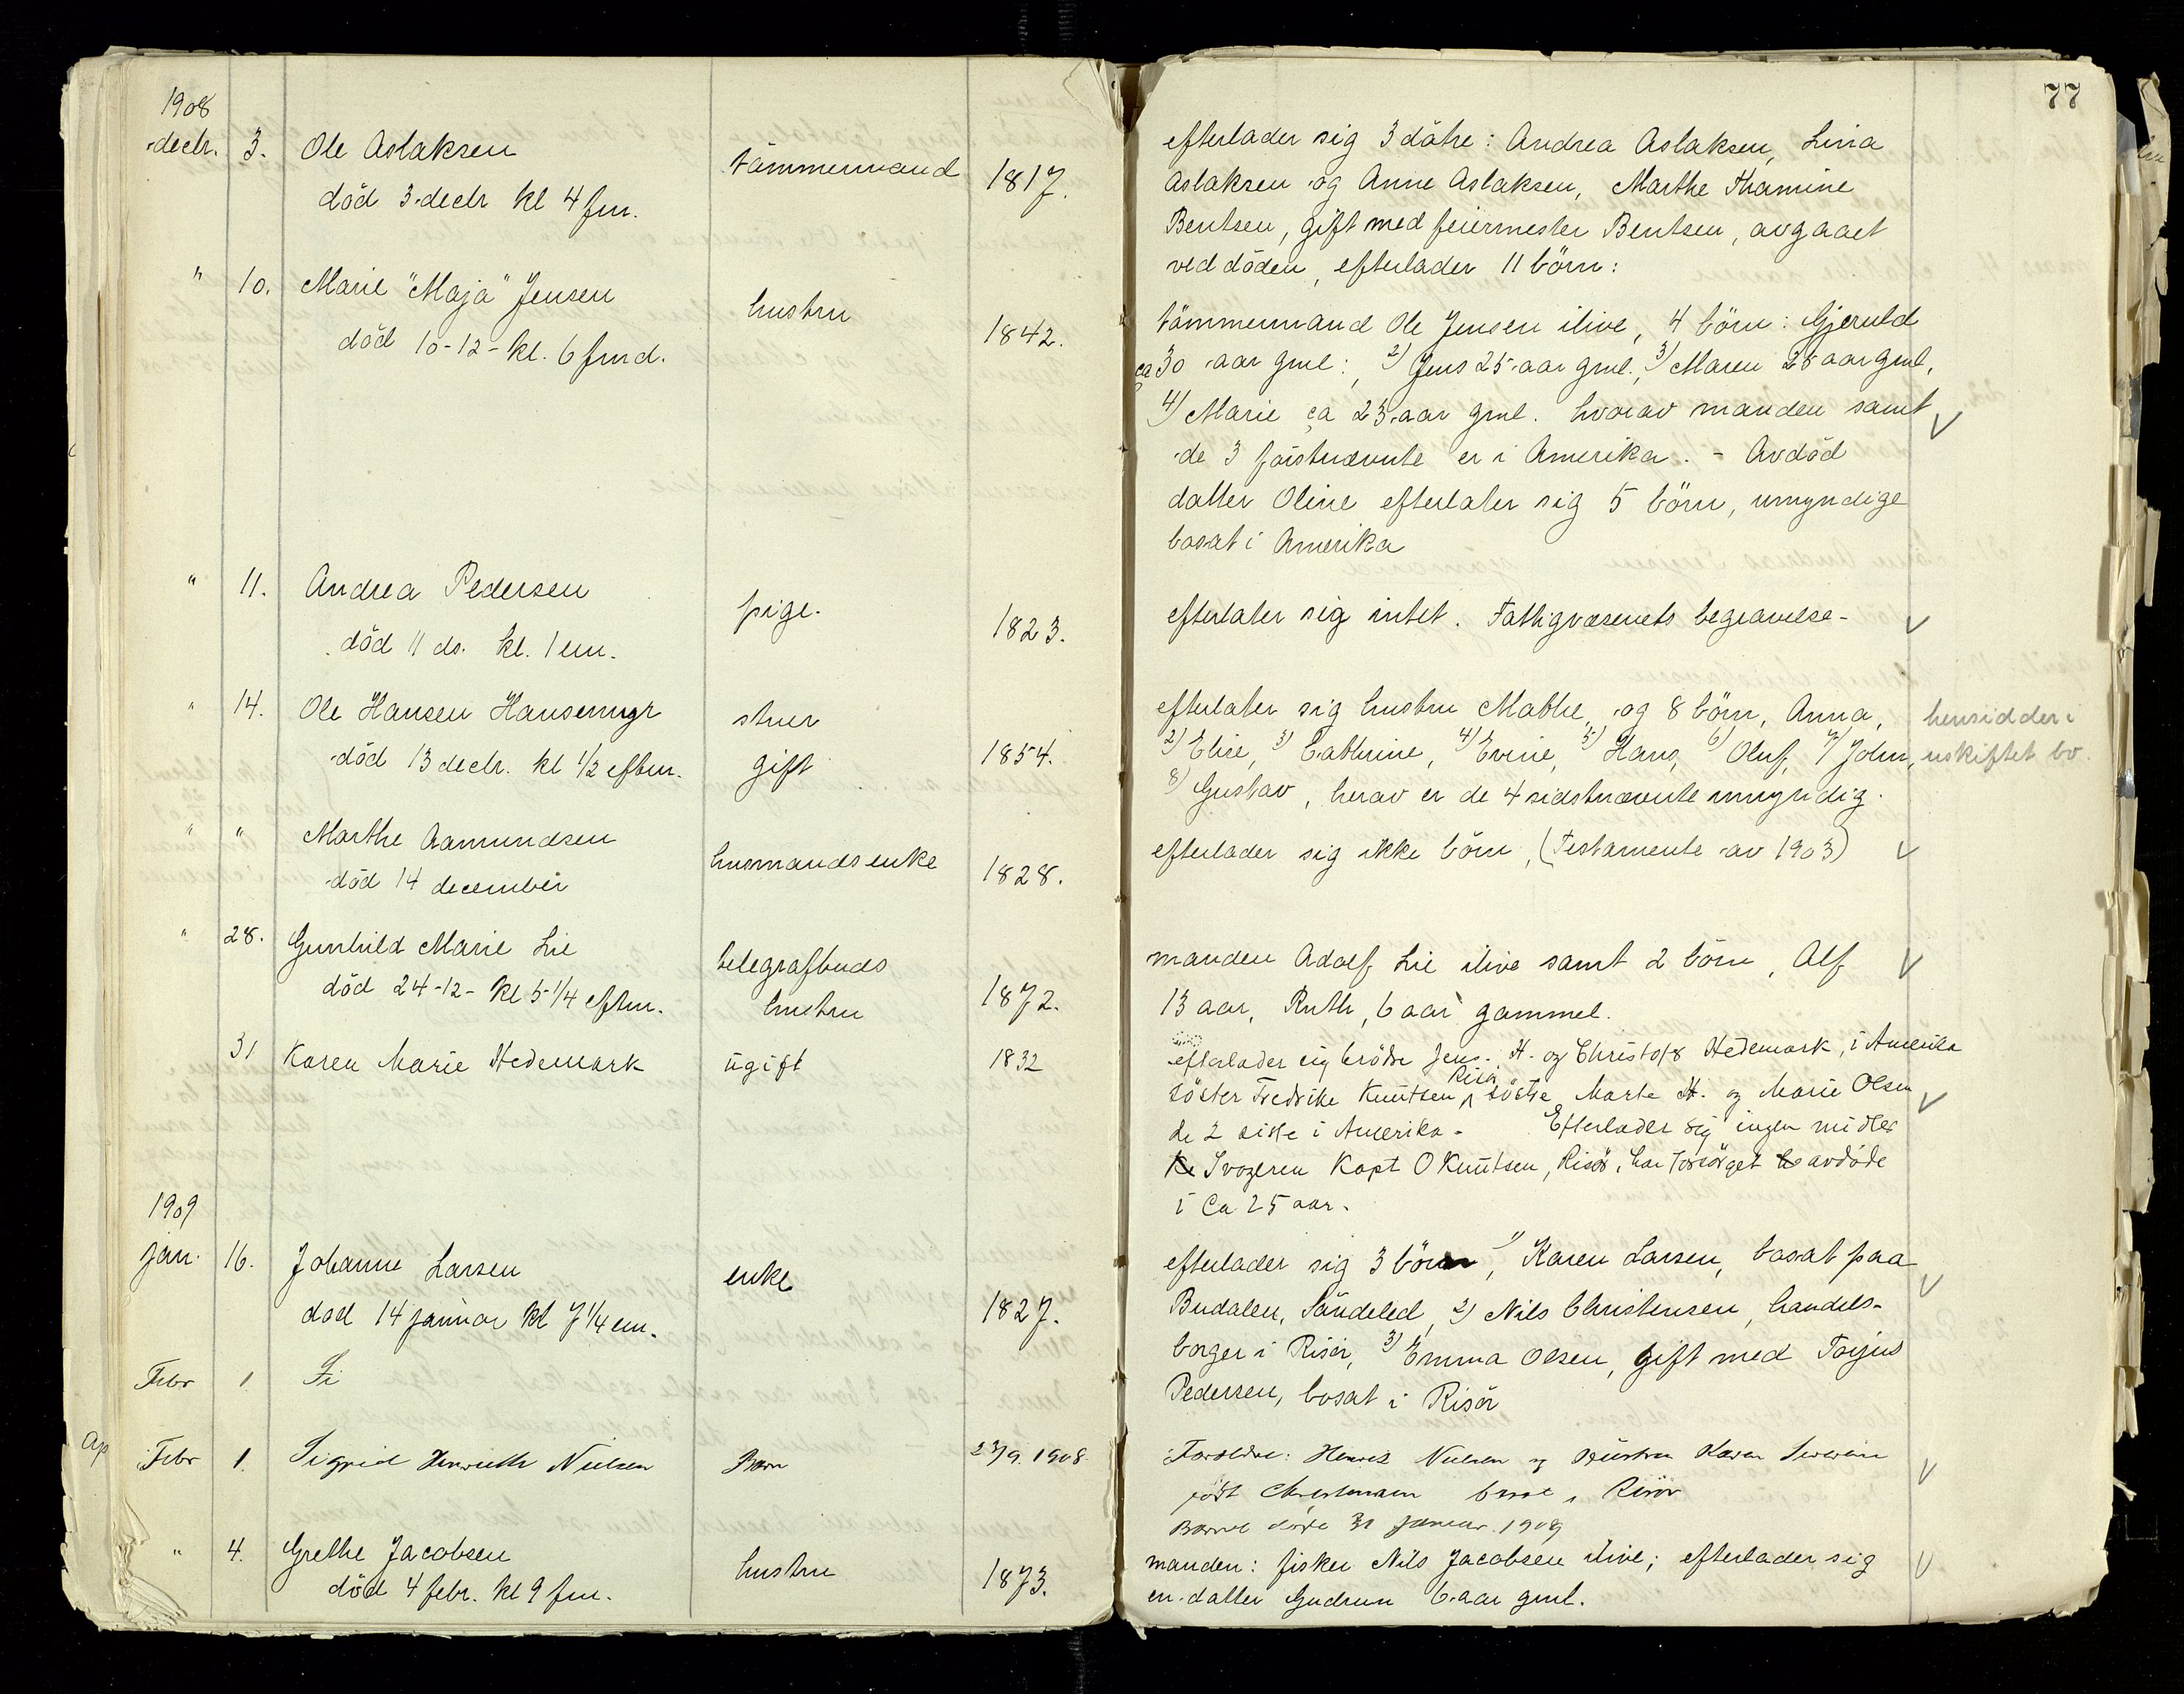 77
1908
decbr. 3. Ole Aslaksen tömmermand 1817.
död 3 decbr kl 4 fm.
efterlader sig 3 dötre: Andrea Aslaksen, Lina
Aslaksen og Anne Aslaksen, Marthe Thamine
Bentsen, gift med feiermester Bentsen, avgaaet
ved döden, efterlader 11 börn:
" 10. Marie "Maja" Jensen hustru 1842.
död 10-12- kl. 6 fmd.
tömmermand Ole Jensen ilive, 4 börn: Gjeruld
ca 30 aar gml:, 2) Jens 25 aar gml., 3) Maren 28 aar gml,
4) Marie ca 23 aar gml. hvorav manden samt
de 3 förstnævnte er i Amerika. - Avdöd
datter Oline efterlater sig 5 börn, umyndige
bosat i Amerika
" 11. Andrea Pedersen pige. 1823.
död 11 ds. kl. 1 em.
efterlater sig intet. Fattigvæsenets begravelse-
" 14. Ole Hansen Hansemyr stuer 1854.
död 13 decbr. kl 1/2 eftm. gift
efterlater sig hustru Mathe, og 8 börn, Anna,
2) Elise, 3) Cathrine, 4) Evine, 5) Hans, 6) Oluf, 7) John,
8) Gustav, herav er de 4 sidstnævnte umyndig.
hensidder i
uskiftet bo.
" " Marthe Aamundsen husmandsenke 1828.
död 14 december
efterlader sig ikke börn, (Testamente av 1903)
" 28. Gunhild Marie Lie telegrafbuds
död 24-12- kl 5 1/4 eftm. hustru 1872.
manden Adolf Lie ilive samt 2 börn, Alf
13 aar, Ruth, 6 aar gammel.
31 Karen Marie Hedemark ugift 1832
efterlader sig brödre Jens. H. og Christofs Hedemark, i Amerika
söster Fredrike Knutsen Risör söstre Marte H. og Marie Olsen
de 2 siste i Amerika - Efterlader sig ingen midler
Svogeren Kapt O Knutsen, Risör, har forsörget avdöde
i Ca 25 aar.
1909
jan. 16. Johanne Larsen enke 1827.
död 14 januar kl 7 1/4 em.
efterlader sig 3 börn, 1) Karen Larsen, bosat paa
Budalen, Söndeled, 2) Nils Christensen, handels-
borger i Risör, 3) Emma Olsen, gift med Torjus
Pedersen, bosat i Risör
Febr 1 Si
Febr 1. Sigrid Nielsen Barn 23/9. 1908.
Forældre: Henrik Nielsen og Hustru Karen
född Christensen i Risör
Barnet döde 31 Januar 1909
" 4. Grethe Jacobsen hustru 1873.
död 4 febr. kl 9 fm.
manden: fisker Nils Jacobsen ilive; efterlader sig
en datter Gudrun 6 aar gml.